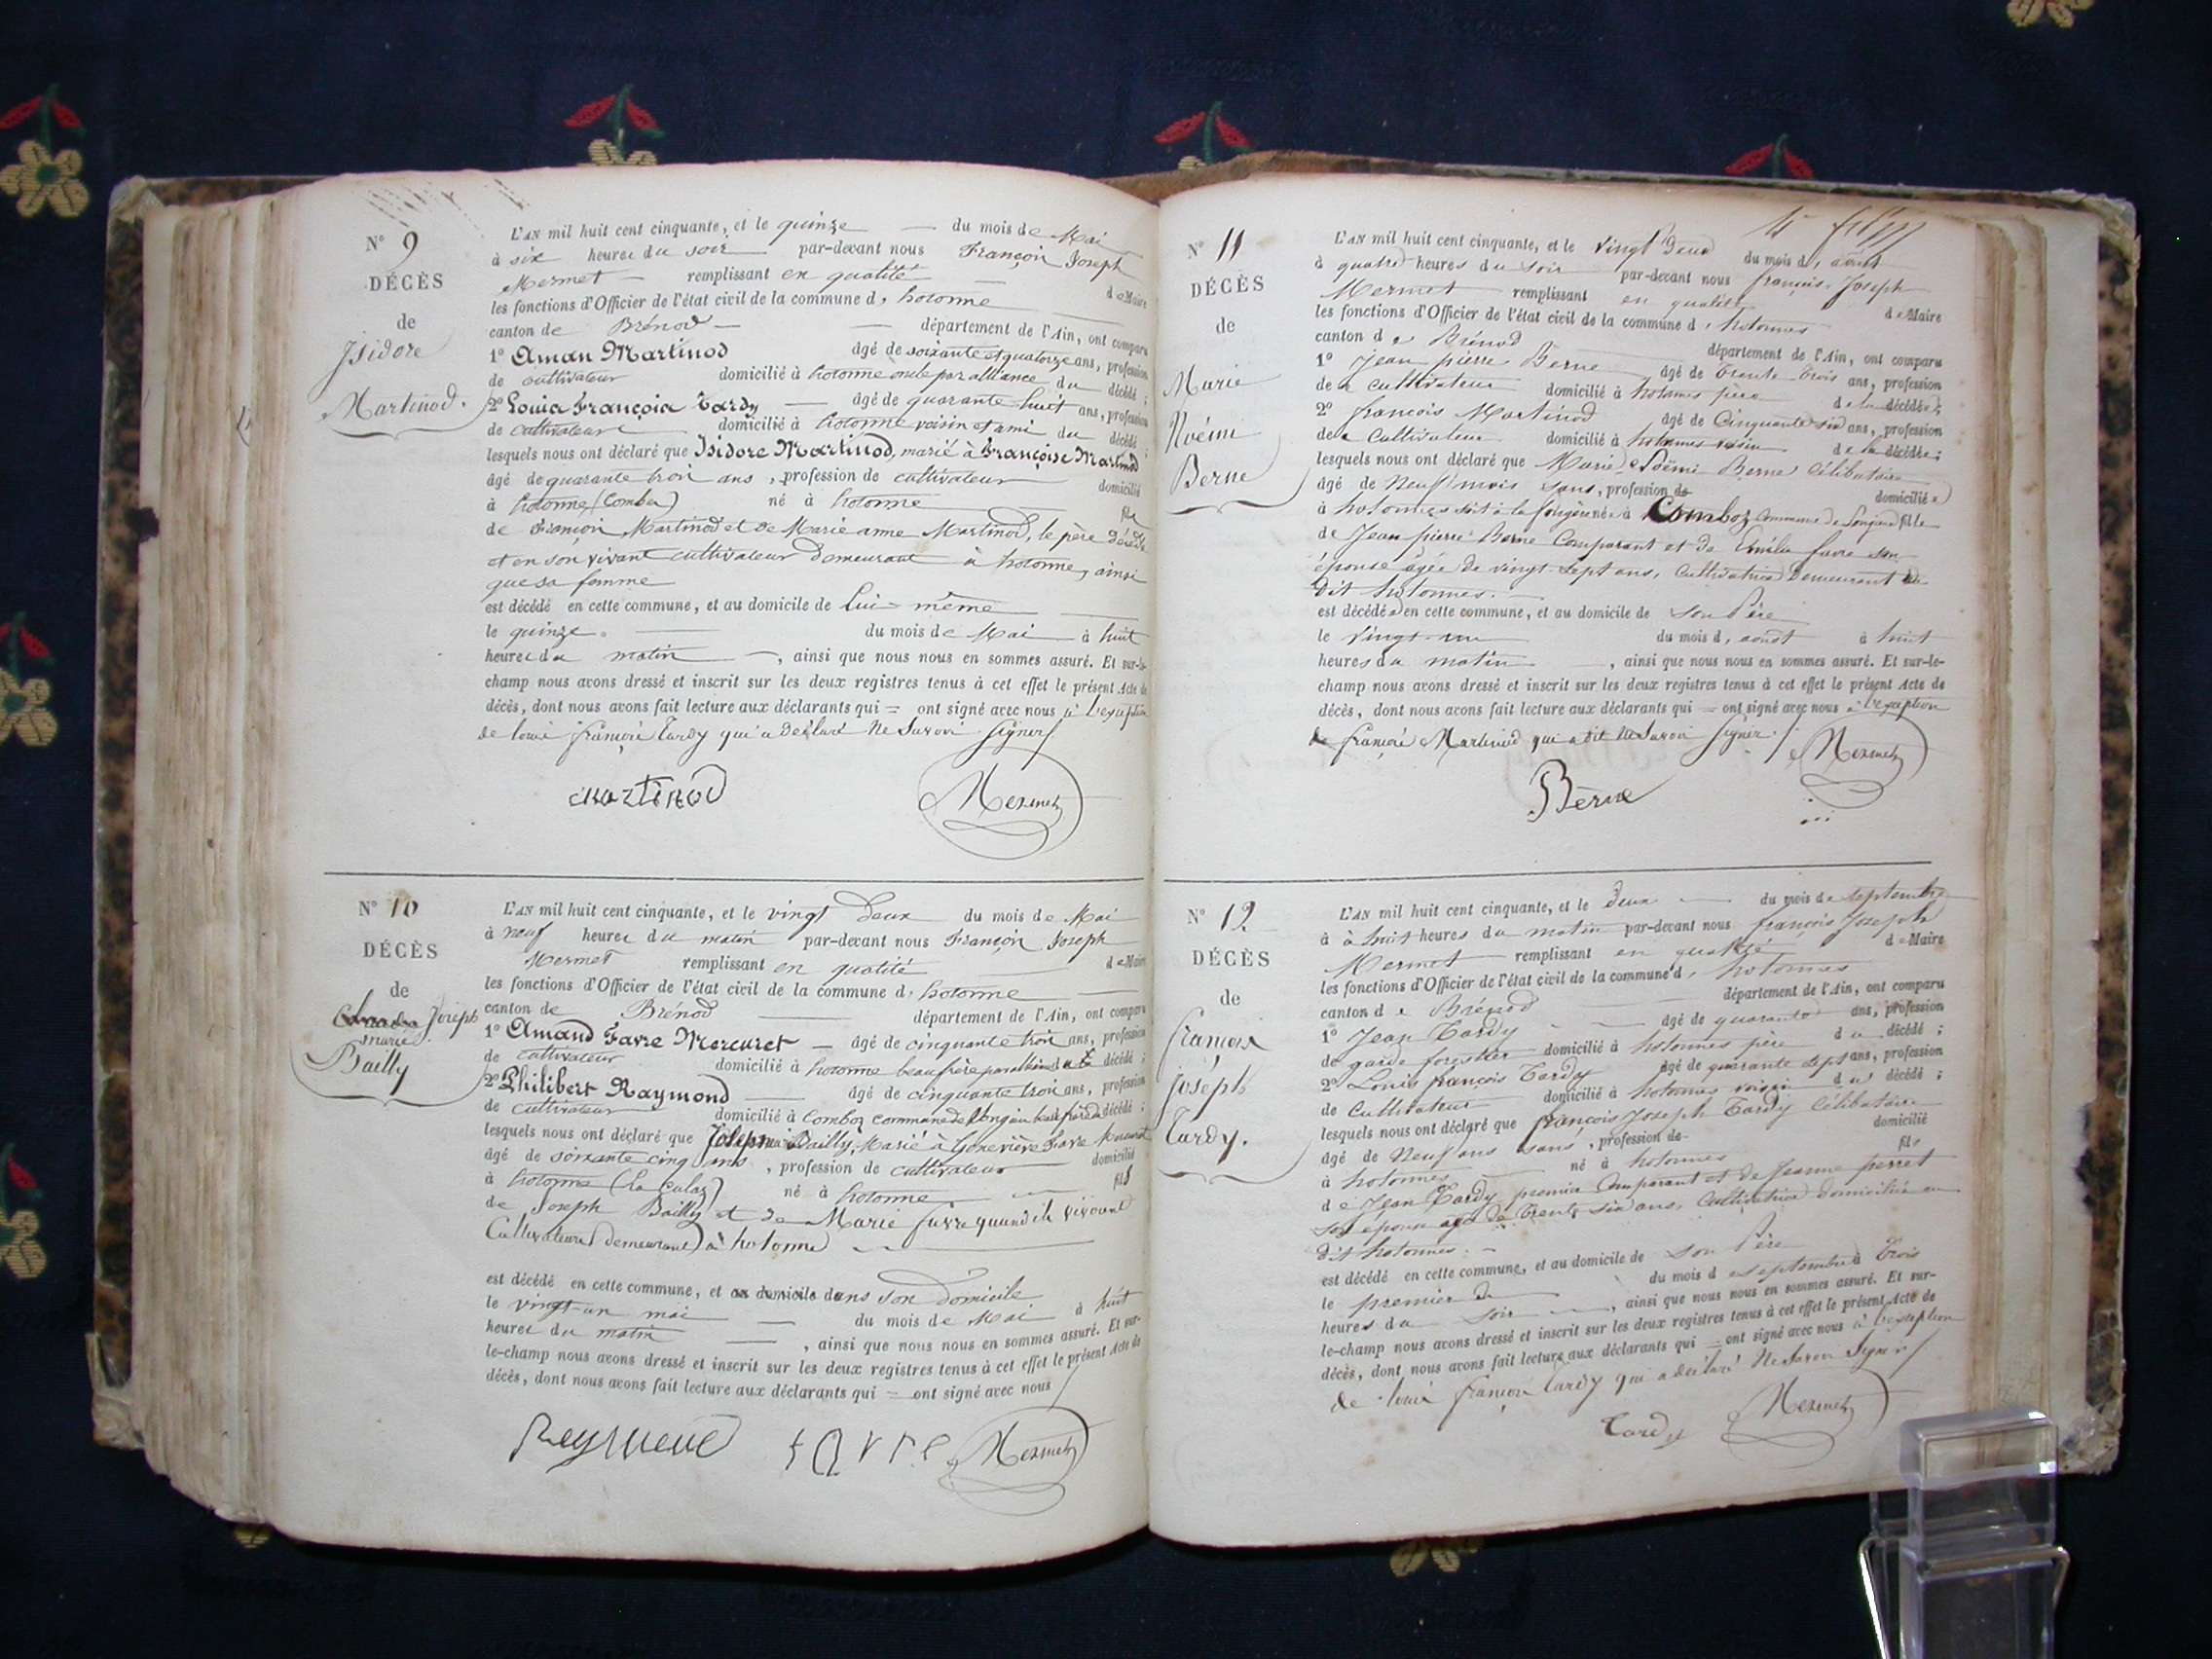 N° 9
DÉCÈS
de
Isidore
Martinod.
L'AN mil huit cent cinquante, et le quinze du mois de Mai
à six heures du soir par-devant nous François Joseph
Mermet remplissant en qualité de Maire
les fonctions d'Officier de l'état civil de la commune d' hotonne
canton de Brénod département de l'Ain, ont comparu
1° Aman Martinod âgé de soixante et quatorze ans, profession
de cultivateur domicilié à hotonne oncle par alliance du décédé ;
2° Louis François Tardy âgé de quarante huit ans, profession
de cultivateur domicilié à hotonne voisin et ami du décédé ;
lesquels nous ont déclaré que Isidore Martinod, marié à Françoise Martinod
âgé de quarante trois ans, profession de cultivateur domicilié
à hotonne (Combes) né à hotonne fils
de François Martinod et de Marie anne Martinod, le père décédé
et en son vivant cultivateur demeurant à hotonne, ainsi
que sa femme
est décédé en cette commune, et au domicile de lui-même
le quinze du mois de Mai à huit
heures du matin, ainsi que nous nous en sommes assuré. Et sur-le-
champ nous avons dressé et inscrit sur les deux registres tenus à cet effet le présent Acte de
décès, dont nous avons fait lecture aux déclarants qui = ont signé avec nous à l'exception
de louis françois Tardy qui a déclaré ne savoir signer/
Martinod Mermet
N° 10
DÉCÈS
de
Joseph
marie
Bailly
L'AN mil huit cent cinquante, et le vingt deux du mois de Mai
à neuf heures du matin par-devant nous François Joseph
Mermet remplissant en qualité de Maire
les fonctions d'Officier de l'état civil de la commune d' hotonne
canton de Brénod département de l'Ain, ont comparu
1° Amand Favre Mercuret âgé de cinquante trois ans, profession
de cultivateur domicilié à hotonne beaufrère par alliance du décédé ;
2° Philibert Raymond âgé de cinquante trois ans, profession
de cultivateur domicilié à Comboz commune de Longieu beaufrère du décédé ;
lesquels nous ont déclaré que Joseph Bailly, Marié à Geneviève Favre Mercuret
âgé de soixante cinq ans, profession de cultivateur domicilié
à hotonne (la Culaz) né à hotonne fils
de Joseph Bailly et de Marie favre quand ils vivoient
Cultivateurs demeurant à hotonne
est décédé en cette commune, et au domicile dans son domicile
le vingt-un mai du mois de Mai à huit
heures du matin, ainsi que nous nous en sommes assuré. Et sur-
le-champ nous avons dressé et inscrit sur les deux registres tenus à cet effet le présent Acte de
décès, dont nous avons fait lecture aux déclarants qui = ont signé avec nous/
Reymond favre Mermet
N° 11
DÉCÈS
de
Marie
Noémi
Berne
L'AN mil huit cent cinquante, et le vingt deux du mois d' août
à quatre heures du soir par-devant nous françois Joseph
Mermet remplissant en qualité de Maire
les fonctions d'Officier de l'état civil de la commune d' hotonnes
canton de Brénod département de l'Ain, ont comparu
1° Jean pierre Berne âgé de trente trois ans, profession
de cultivateur domicilié à hotonnes père de la décédée ;
2° françois Martinod âgé de Cinquante six ans, profession
de Cultivateur domicilié à hotonnes voisin de la décédée ;
lesquels nous ont déclaré que Marie Noëmi Berne Célibataire
âgé de Neuf mois sans, profession de domiciliée
à hotonnes née à Comboz Commune de Songieu fille
de Jean pierre Berne Comparant et de Emélie favre son
épouse âgée de vingt sept ans, Cultivatrice Demeurant au
dit hotonnes.
est décédée en cette commune, et au domicile de son Père
le vingt-un du mois d' aoust à huit
heures du matin, ainsi que nous nous en sommes assuré. Et sur-le-
champ nous avons dressé et inscrit sur les deux registres tenus à cet effet le présent Acte de
décès, dont nous avons fait lecture aux déclarants qui = ont signé avec nous à l'exception
de françois Martinod qui a dit ne savoir signer./ Mermet
Berne
N° 12
DÉCÈS
de
françois
joseph
Tardy.
L'AN mil huit cent cinquante, et le deux du mois de septembre
à à huit heures du matin par-devant nous françois Joseph
Mermet remplissant en qualité de Maire
les fonctions d'Officier de l'état civil de la commune d' hotonnes
canton de Brénod département de l'Ain, ont comparu
1° Jean Tardy âgé de quarante ans, profession
de garde forestier domicilié à hotonnes père du décédé ;
2° Louis françois Tardy âgé de quarante sept ans, profession
de Cultivateur domicilié à hotonnes voisin du décédé ;
lesquels nous ont déclaré que françois Joseph Tardy Célibataire
âgé de Neuf ans sans, profession de domicilié
à hotonnes né à hotonnes fils
de Jean Tardy premier Comparant et de Jeanne perret
son épouse agé de Trente six ans, Cultivatrice domiciliée au
dit hotonnes.
est décédé en cette commune, et au domicile de son Père
le premier du du mois de septembre à Trois
heures du soir, ainsi que nous nous en sommes assuré. Et sur-
le-champ nous avons dressé et inscrit sur les deux registres tenus à cet effet le présent Acte de
décès, dont nous avons fait lecture aux déclarants qui = ont signé avec nous à l'exception
de louis françois Tardy qui a déclaré ne savoir signer/
Tardy Mermet